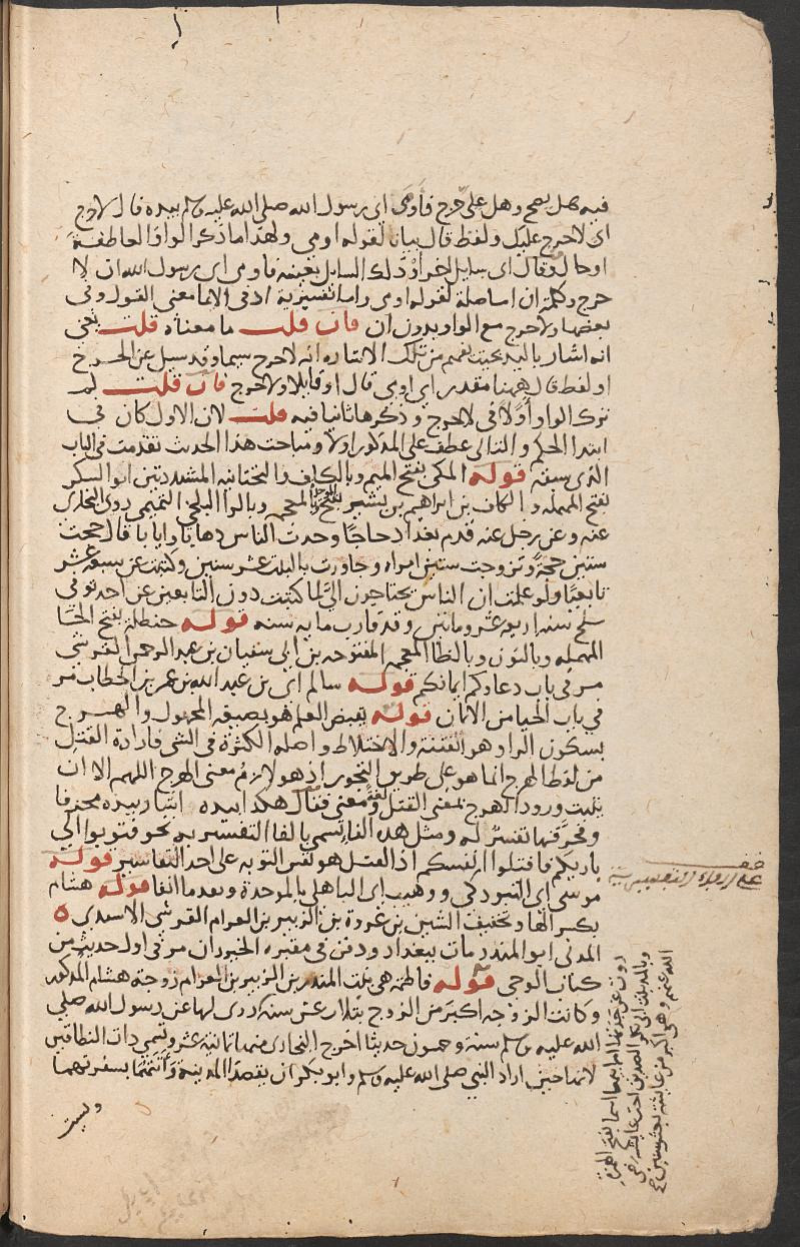 فيه هل يصح وهل على حرج فأومى اى رسول الله صلى الله عليه وسلم بيده قال لا حرج
اى لا حرج عليك ولفظ قال بيان لقوله اومى ولهذا ما ذكر الواو العاطفة
او حال وقال اى سايل اخر او ذلك السايل بعينه فاومى اى رسول الله ان لا
حرج وكلمة ان اما صلة لقوله اومى واما تفسيرية اذ فى الايما معنى القول وفى
بعضها ولا حرج مع الواو بدون ان فان قلت ما معناه قلت يعنى
انه اشار باليد بحيث يفهم من تلك الاشارة انه لا حرج سيما وقد سيل عن الحرج
او لفظ قال ههنا مقدر اى اومى قال او قايلا ولا حرج فان قلت لم
ترك الواو أولا فى لا حرج وذكرها ثانيا فيه قلت لان الاول كان فى
ابتدا الحكم والثانى عطف على المذكور اولا ومباحث هذا الحديث تقدمت فى الباب
الذى سبقه قوله المكى بفتح الميم وبالكاف والتحتانية المشددتين ابو السكن
بفتح المهملة والكاف بن ابراهيم بن بشير بفتح الموحدة وبالمعجمة وبالرا البلخى التميمى روى البخارى
عنه وعن رجل عنه قدم بغداد حاجا وحدث الناس ذهابا وايابا قال حججت
ستين حجة وتزوجت ستين امراة وجاورت بالبيت عشر سنين وكتبت عن سبعة عشر
تابعيا ولو علمت ان الناس يحتاجون الىّ لما كتبت دون التابعين عن احد توفى
بلخ سنة اربع عشر ومايتين وقد قارب ماية سنة قوله حنظلة بفتح الحا
المهملة وبالنون وبالظا المعجمة المفتوحة بن ابى سفيان بن عبد الرحمن القرشى
مر فى باب دعاوكم ايمانكم قوله سالم اى بن عبد الله بن عمر بن الخطاب مر
فى باب الحيا من الايمان قوله يقبض العلم هو بصيغة المجهول والهرج
بسكون الرا وهو الفتنة والاختلاط واصله الكثرة فى الشى فارادة القتل
من لفظ الهرج انما هو على طريق التجوز اذ هو لازم معنى الهرج اللهم الا ان
يثبت ورود الهرج بمعنى القتل لغة ومعنى فقال هكذا بيده اشار بيده محرفا
وفحرفها تفسير له ومثل هذه الفا تسمى بالفا التفسيرية نحو فتوبوا الى
باريكم فاقتلوا انفسكم اذ القتل هو نفس التوبة على احد التفاسير قوله
موسى اى التبوذكى ووهيب اى الباهلى بالموحدة وتقدما انفا قوله هشام
بكسر الها وتخفيف الشين بن عروة بن الزبير بن العوام القرشى الاسدى ه
المدنى ابو المنذر مات ببغداد ودفن فى مقبرة الخيزران مر فى اول حديث من
كتاب الوحى قوله فاطمة هى بنت المنذر بن الزبير بن العوام زوجة هشام المذكور
وكانت الزوجة اكبر من الزوج بثلاث عشر سنة روى لها عن رسول الله صلى
الله عليه وسلم ستة وخمسون حديثا اخرج البخارى منها ثمانية عشر وتسمى ذات النطاقين
لانها حين اراد النبى صلى الله عليه وسلم وابو بكر ان يقصدا المدينة وأتتهما بسفرتهما
وليست
على الفا التفسيرية
روت عن جدتها ام ابيها اسما بفتح الهمزة
وبالمد بنت ابى بكر الصديق اخت عايشة رضى
الله عنهم وهى اكبر من عايشة بعشر سنين